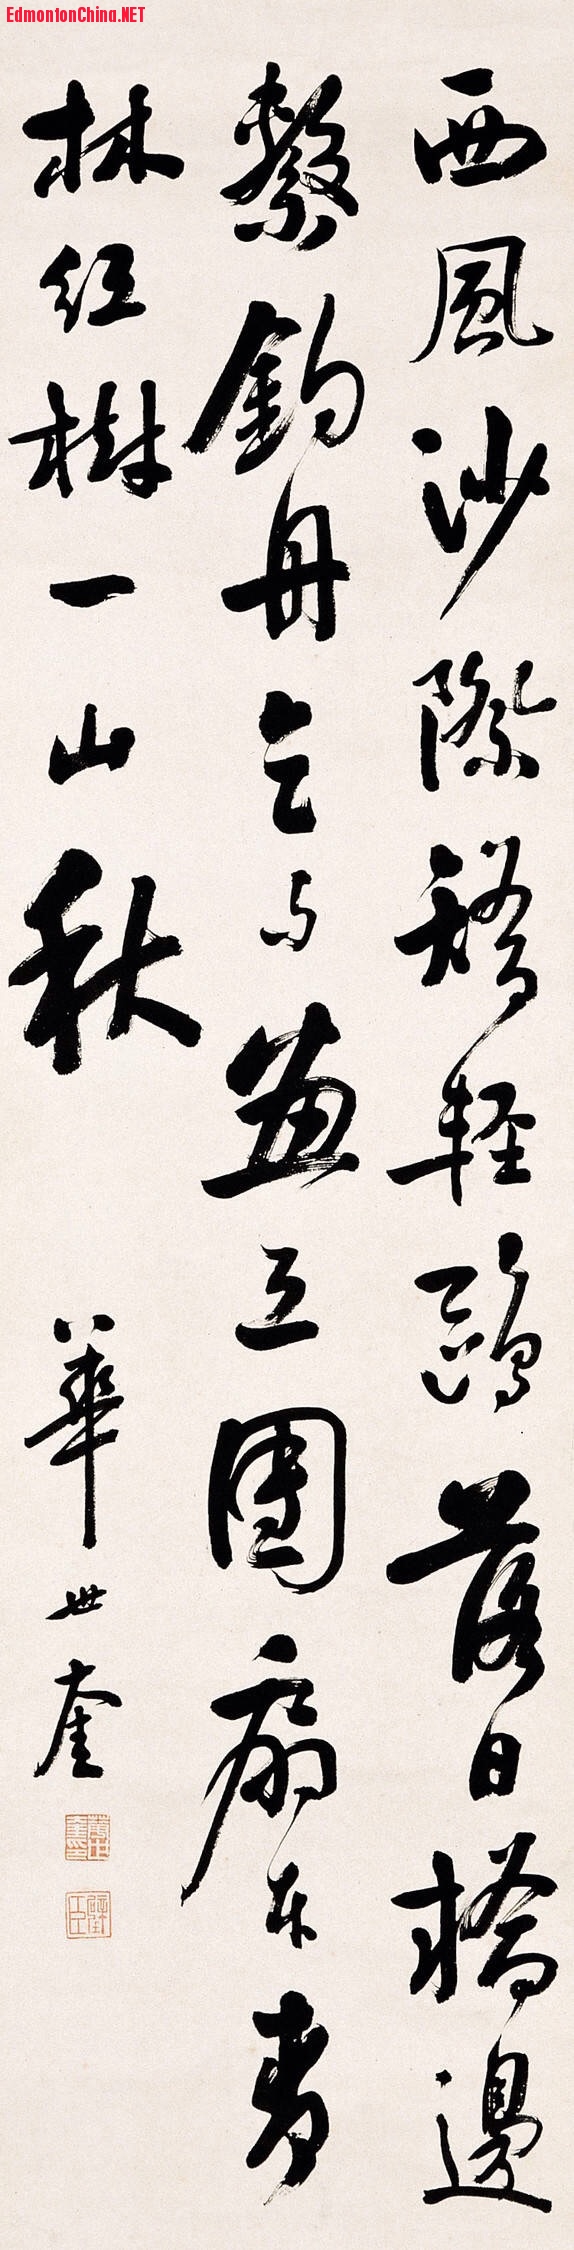 EdmontonChina.NET
西風沙際矯輕鷗落日橋邊
繫釣舟乞與畫工團扇本青
林紅樹一山秋
華世奎
華世奎印
璧臣